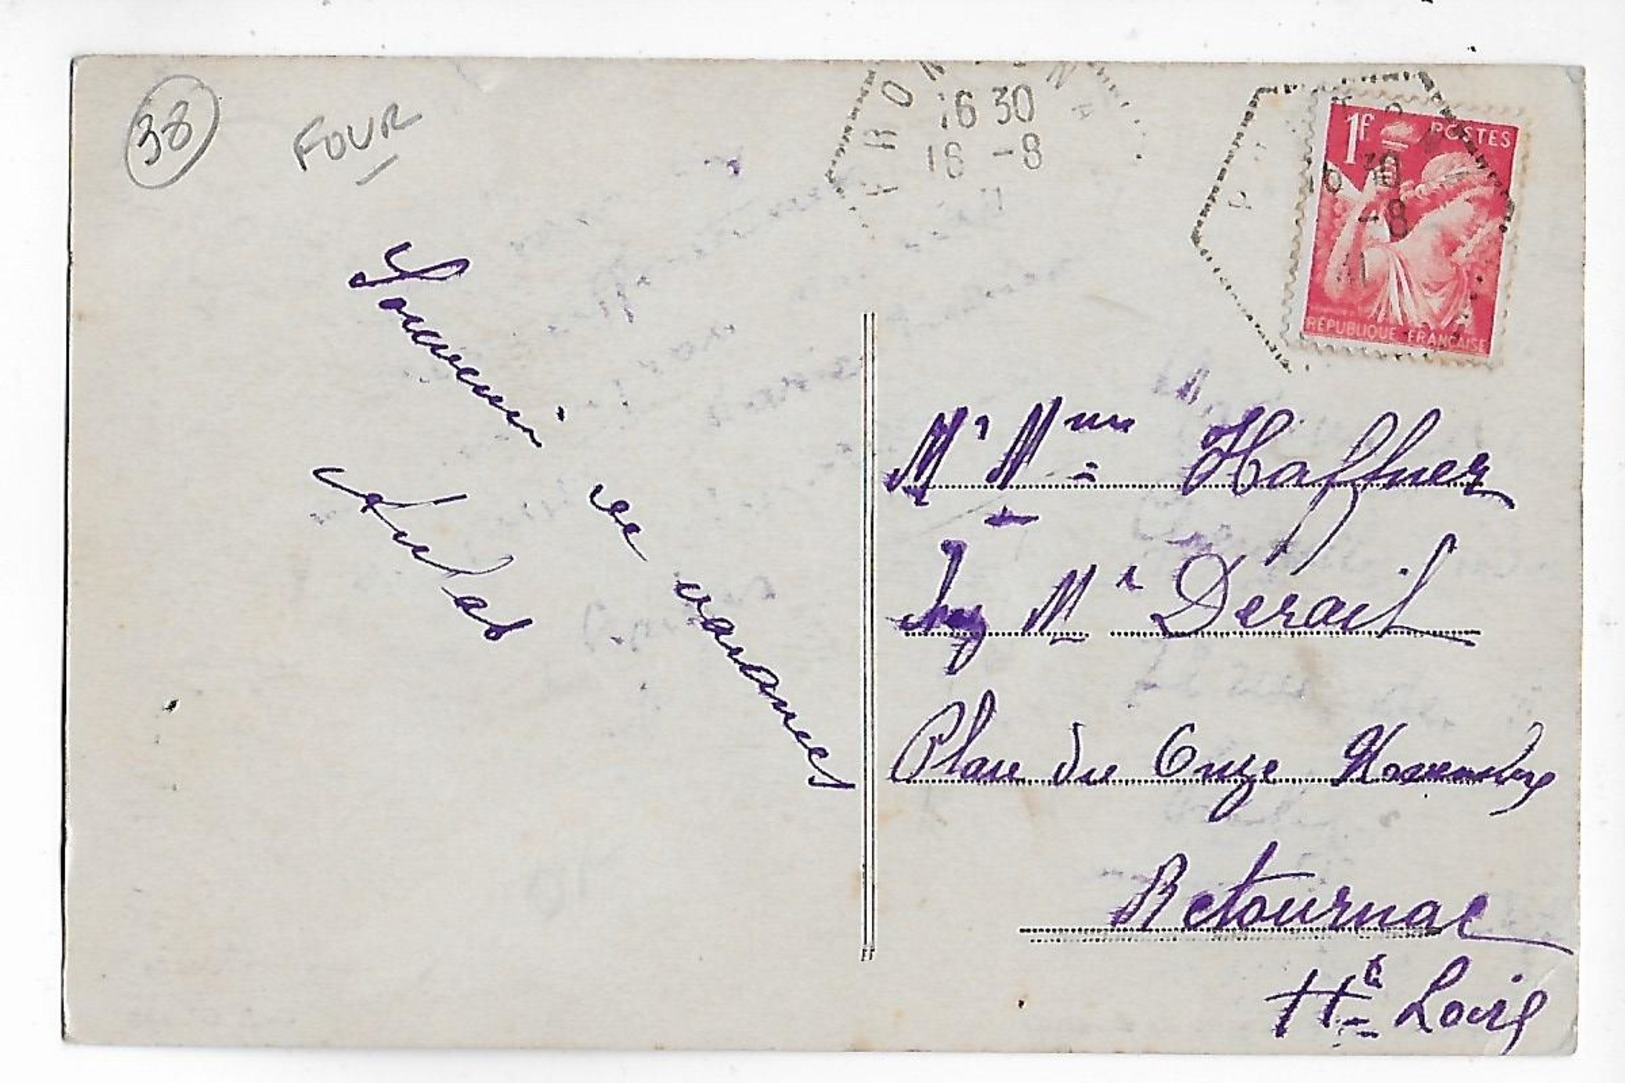 38
FOUR
16 30
16 -8
1F POSTES
30
-8
41
RÉPUBLIQUE FRANÇAISE
Souvenir de vacances
Mr Mme Haffner
Mr Derail
Place du Onze Novembre
Retournac
Hte Loire